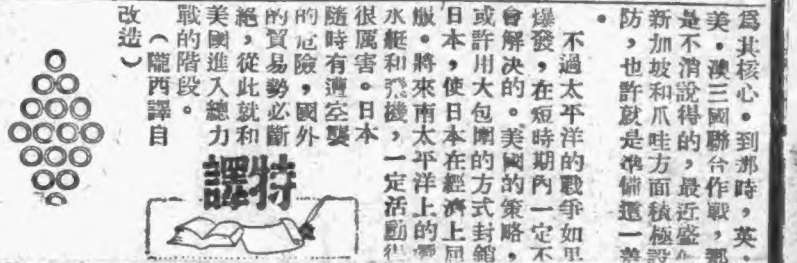 為其核心。到那時，英，
美，澳三國聯合作戰，那
是不消說得的，最近盛
新加坡和爪哇方面積極設
防，也許就是準備這一着
。
不過太平洋的戰爭如果
爆發，在短時期內一定不
會解決的。美國的策略，
或許用大包圍的方式封銷
日本，使日本在經濟上屈
服。將來南太平洋上的潛
水艇和飛機，一定活動得
很厲害。日本
隨時有遭空襲
的危險，國外
的貿易勢必斷
絕，從此就和
美國進入總力
戰的階段。
（隴西譯自
改造）
特譯